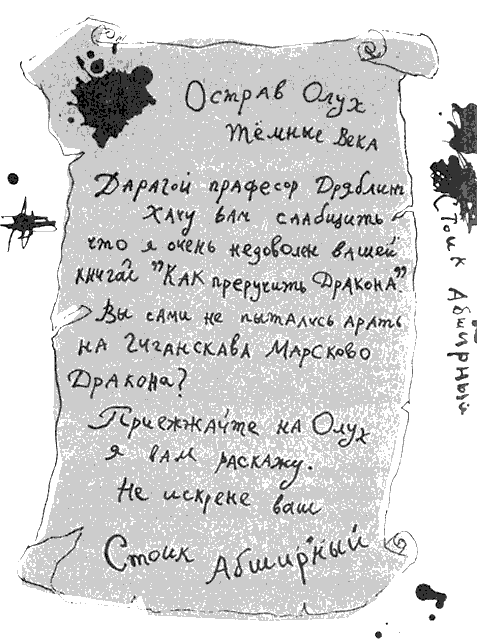 Острав Олух
Тёмные Века
Дарагой прафесор Дряблинг
Хачу вам слабщить
что я очень недоволен вашей
книгай "Как преручить Дракона"
Вы сами не пытались арать
на Гиганскава Марсково
Дракона?
Приежжайте на Олух
я вам раскажу.
Не искрене ваш
Стоик Абширный
Стоик Абширный